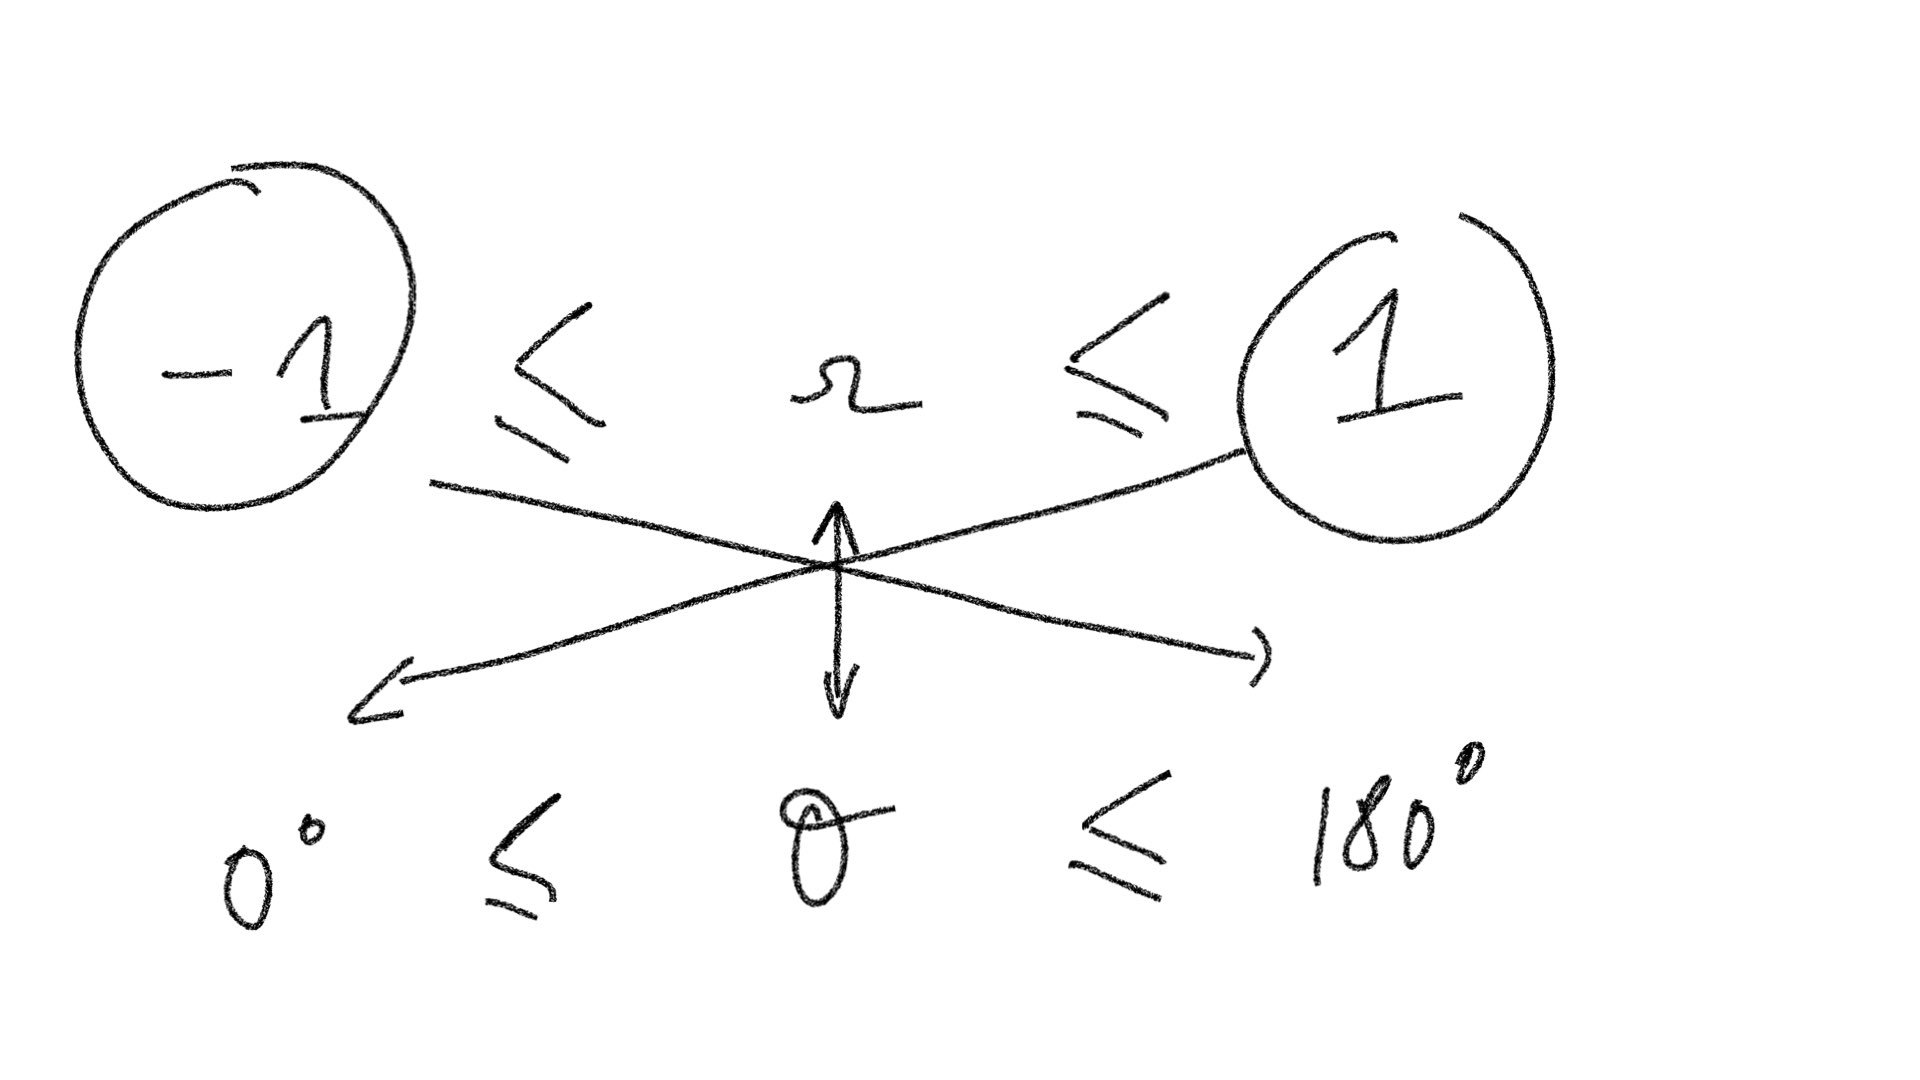 -1 ≤ r ≤ 1
0° ≤ θ ≤ 180°